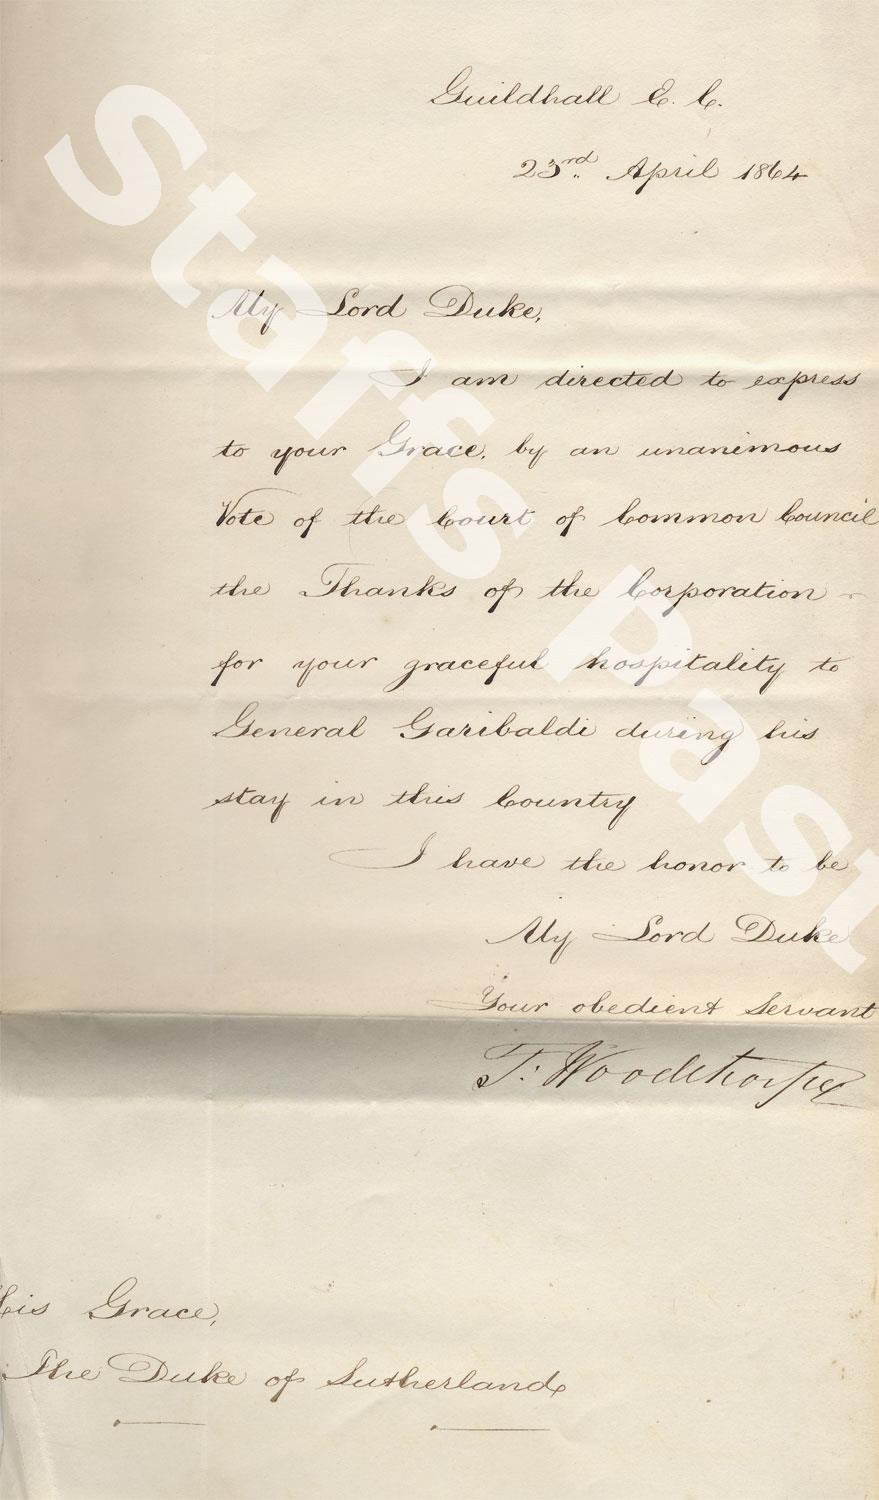 Guildhall E. C.
23rd April 1864
My Lord Duke,
I am directed to express
to your Grace, by an unanimous
Vote of the Court of Common Council
the Thanks of the Corporation
for your graceful hospitality to
General Garibaldi during his
stay in this Country
I have the honor to be
My Lord Duke
Your obedient Servant
F: Woodthorpe
His Grace,
The Duke of Sutherland
Staffs Past